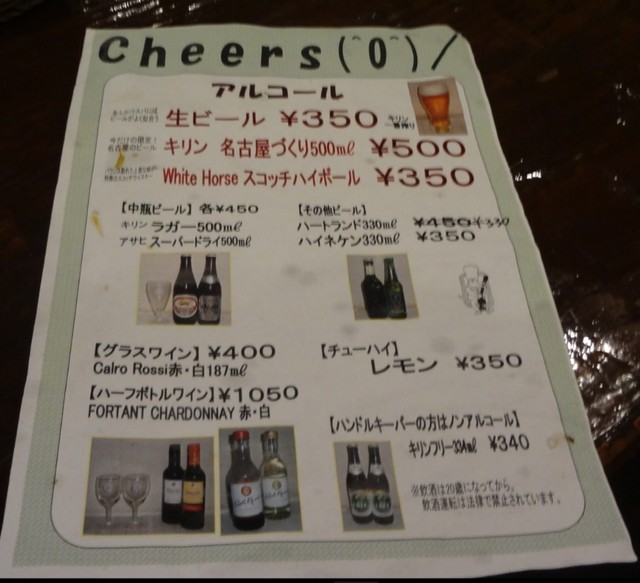 Cheers(^0^)/
アルコール
生ビール ¥350
キリン
一番搾り
今だけの限定!
名古屋のビール
キリン 名古屋づくり500㎖ ¥500
White Horse スコッチハイボール ¥350
【中瓶ビール】各¥450
キリン ラガー500㎖
アサヒ スーパードライ500㎖
【その他ビール】
ハートランド330㎖ ¥450
ハイネケン330㎖ ¥350
【グラスワイン】¥400
Calro Rossi赤・白187㎖
【ハーフボトルワイン】¥1050
FORTANT CHARDONNAY 赤・白
【チューハイ】
レモン ¥350
【ハンドルキーパーの方はノンアルコール】
キリンフリー334㎖ ¥340
※飲酒は20歳になってから。
飲酒運転は法律で禁止されています。